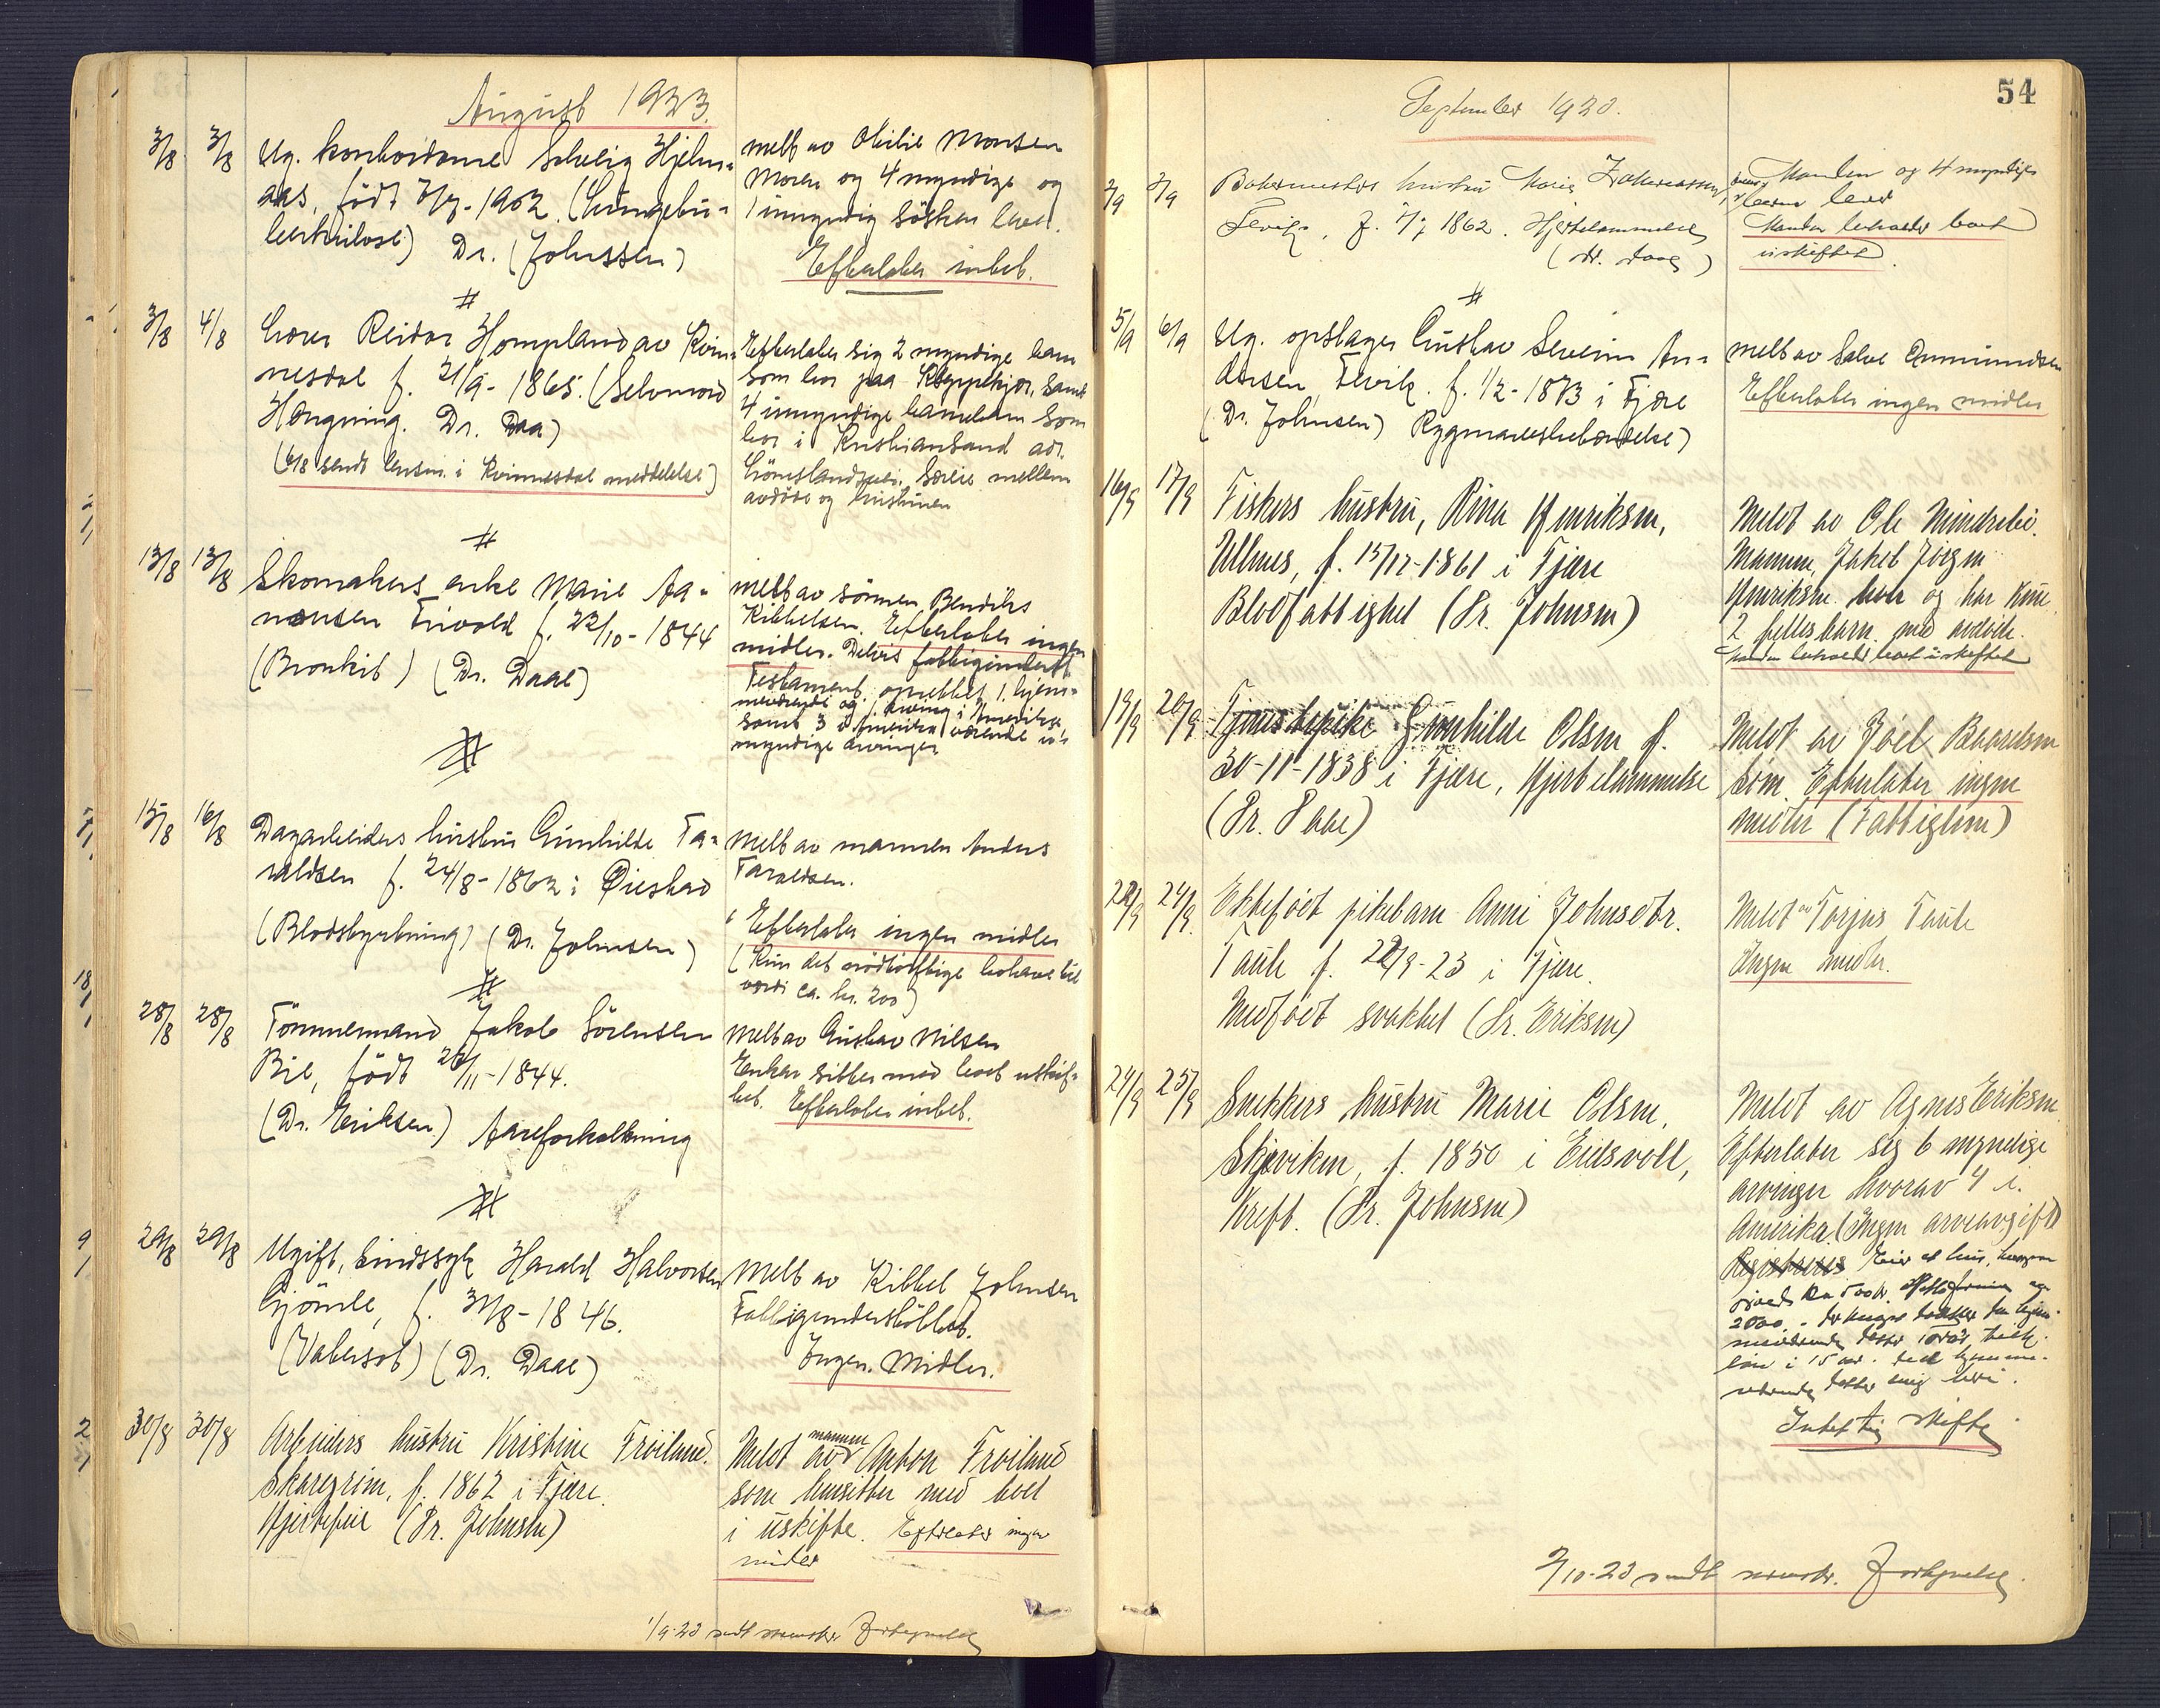 August 1923.
3/8 3/8 Ug. kontordame Solveig Hjelm-
aas, född 7/7-1902. (Lungetu-
berkulose) Dr. (Johnssen)
melt av Otilie Monsen
Moren og 4 myndige og
1 umyndig søsken lever.
Efterlater intet.
#
3/8 4/8 Lærer Reidar Hompland av Kvin-
nesdal f. 21/9-1865. (Selvmord
Hængning. Dr. Daa)
(6/8 sendt lensm. i Kvinnesdal meddelelse)
Efterlater sig 2 myndige barn
som bor paa samt
4 umyndige barn som
bor i Kristiansand adr.
Særeie mellem
avdøde og hustruen
#
13/8 13/8 Skomakers enke Marie Aa-
nonsen Trivold f. 22/10-1844
(Bronkit) (Dr. Daae)
melt av sønnen Bendiks
Kittelsen. Efterlater ingen
midler. Delvis fattigunderst.
Testament oprettet. 1 hjem-
meværende og 1 arving i Amerika
samt 3 i Amerika værende u-
myndige arvinger
#
15/8 16/8 Dagarbeiders hustru Gunhilde Ta-
raldsen f. 24/8-1862 i Øiestad
(Blodstyrtning) (Dr. Johnsen)
melt av mannen Anders
Taraldsen.
Efterlater ingen midler
(Kun det nødtørftige bohave til
verdi ca. kr. 200)
#
28/8 28/8 Tømmermand Jakob Sørensen
Bie, født 26/11-1844.
(Dr. Eriksen) Aareforkalkning
melt av Gustav Nilsen
Enken sitter med boet uskif-
tet. Efterlater intet.
#
29/8 29/8 Ugift, sindssyk Harald Halvorsen
Gjømle, f. 31/8-1846.
(Vatersot) (Dr. Daae)
Melt av Kittel Johnsen
Fattigunderstøttet.
Ingen midler.
30/8 30/8 Arbeiders hustru Kristine Frøiland.
Skaregrøm, f. 1862 i Fjære.
Hjertefeil (Dr. Johnsen)
Meldt av mannen Anton Frøiland
som hensitter med boet
i uskifte. Efterlater ingen
midler
1/9-23 sendt Fortegnelse
54
September 1923.
2/9 3/9 hustru Marie Zakariassen,
Fevik, f. 1862. Hjertelammelse
(Dr. Daae)
Manden og 4 myndige
barn lever
Manden beholder boet
uskiftet.
#
5/9 6/9 Ug. opslager Gustav Severin An-
dersen, Fevik. f. 1/2-1873 i Fjære
(Dr. Johnsen) Rygmarvsbetændelse)
melt av Salve Ommundsen
Efterlater ingen midler
16/9 17/9 Fiskers hustru, Rina Henriksen,
Ullnes, f. 15/12-1861 i Fjære
Blodfattighet (Dr. Johnsen)
Meldt av Ole Nindrebø.
Mannen, Jakob Jørgen
Henriksen lever og har kun
2 felles barn med avdøde.
Manden beholder boet uskiftet
19/9 20/9 Tjenestepike Gunhilde Olsen f.
30-11-1838 i Fjære, Hjertelammelse
(Dr. Daae)
Meldt av Joel Baardsen
Søm. Efterlater ingen
midler (Fattiglem)
22/9 24/9 Ektefødt pikebarn Anni Johnsdtr.
Taule f. 22/9-23 i Fjære.
Medfødt svakhet (Dr. Eriksen)
Meldt av Torjus Taule
Ingen midler.
24/9 25/9 Snekkers hustru Marie Olsen,
Skjeviken, f. 1850 i Eidsvoll,
Kreft. (Dr. Johnsen)
Meldt av Agnes Eriksen
Efterlater sig 6 myndige
arvinger hvorav 4 i
Amerika. (Ingen arveavgift)
Registreres. Eier et hus,
2000.-
i 15 aar.
datter
Intet til skifte.
2/10-23 sendt Fortegnelse.